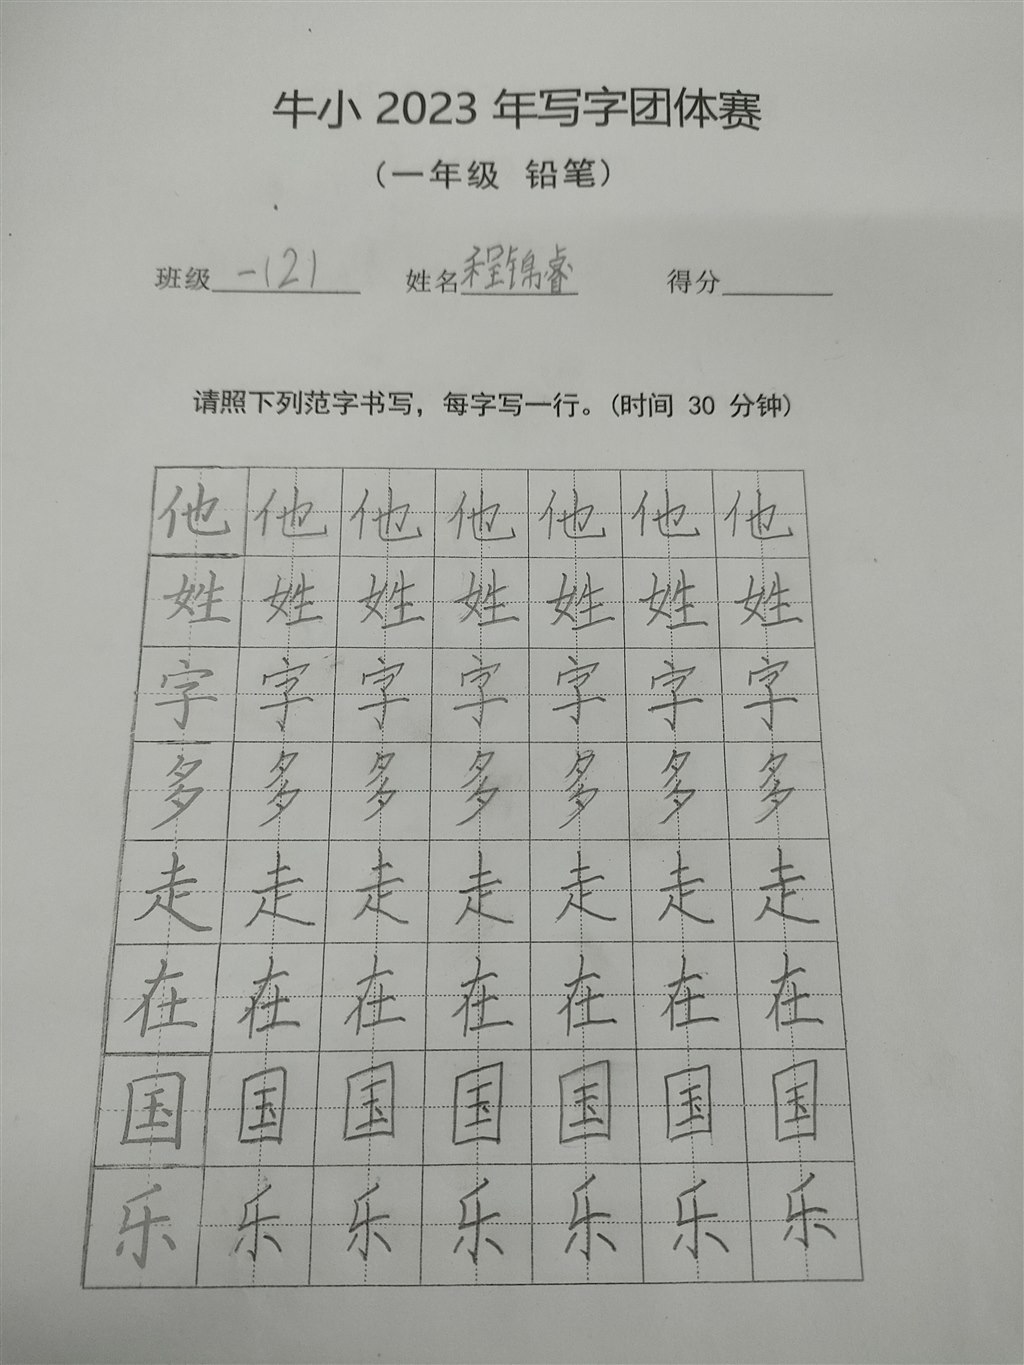 牛小 2023 年写字团体赛
（一年级 铅笔）
班级 一(2) 姓名 程锦睿 得分
请照下列范字书写，每字写一行。(时间 30 分钟)
他 他 他 他 他 他 他
姓 姓 姓 姓 姓 姓 姓
字 字 字 字 字 字 字
多 多 多 多 多 多 多
走 走 走 走 走 走 走
在 在 在 在 在 在 在
国 国 国 国 国 国 国
乐 乐 乐 乐 乐 乐 乐